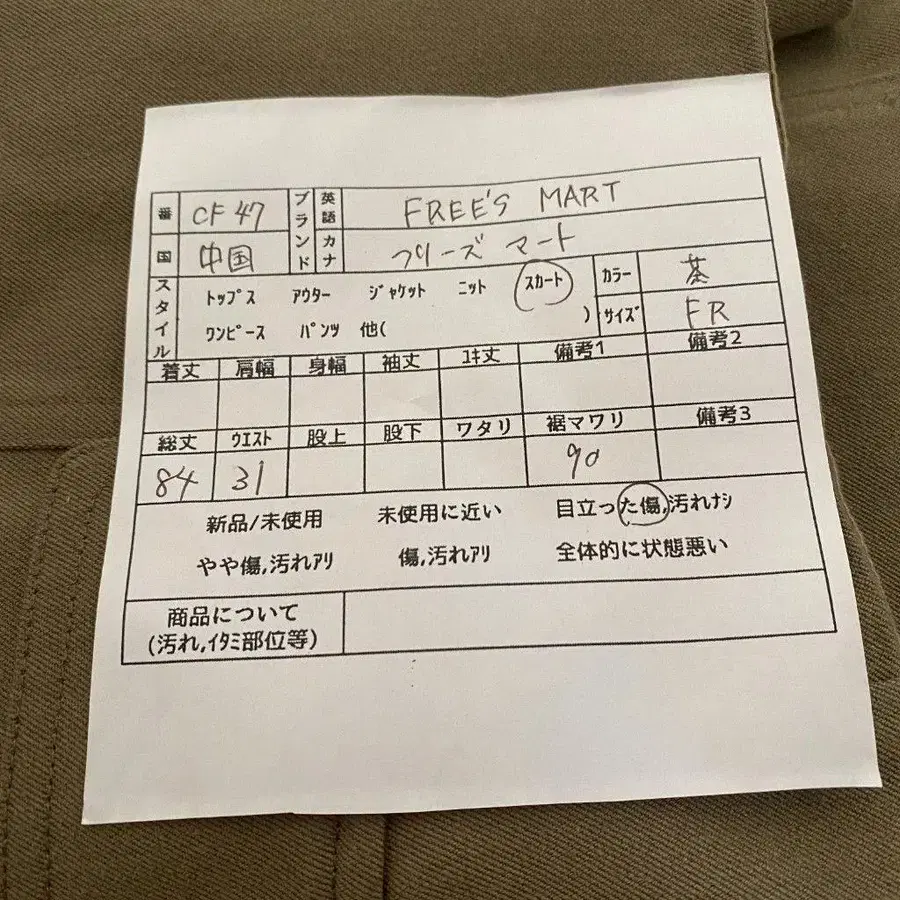 番 CF 47 ブランド 英語 FREE'S MART
国 中国 カナ フリーズ マート
スタイル トップス アウター ジャケット ニット スカート カラー 茶
ワンピース パンツ 他( ) サイズ FR
着丈 肩幅 身幅 袖丈 ユキ丈 備考1 備考2
総丈 ウエスト 股上 股下 ワタリ 裾マワリ 備考3
84 31 90
新品/未使用 未使用に近い 目立った傷,汚れナシ
やや傷,汚れアリ 傷,汚れアリ 全体的に状態悪い
商品について
(汚れ,イタミ部位等)